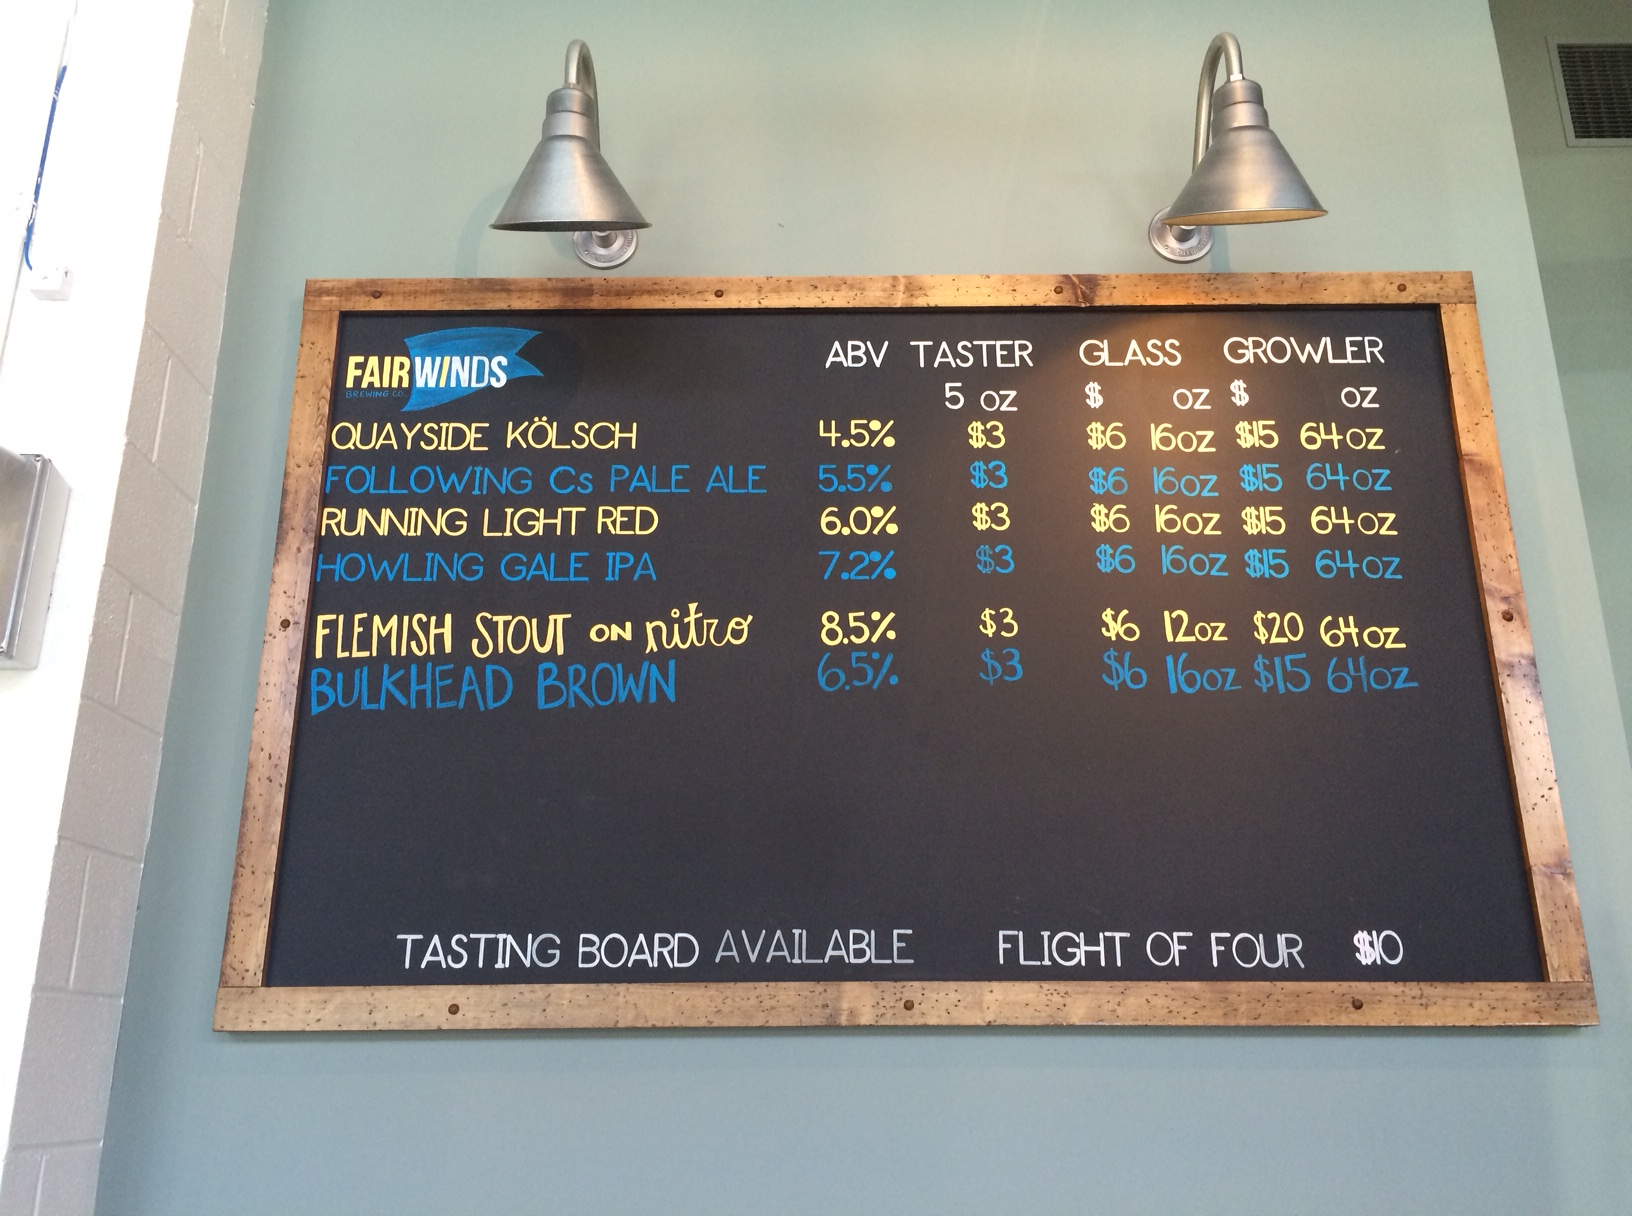 FAIRWINDS
BREWING CO.
ABV TASTER GLASS GROWLER
5 oz $ oz $ oz
QUAYSIDE KÖLSCH 4.5% $3 $6 16oz $15 64oz
FOLLOWING Cs PALE ALE 5.5% $3 $6 16oz $15 64oz
RUNNING LIGHT RED 6.0% $3 $6 16oz $15 64oz
HOWLING GALE IPA 7.2% $3 $6 16oz $15 64oz
FLEMISH STOUT ON nitro 8.5% $3 $6 12oz $20 64oz
BULKHEAD BROWN 6.5% $3 $6 16oz $15 64oz
TASTING BOARD AVAILABLE FLIGHT OF FOUR $10